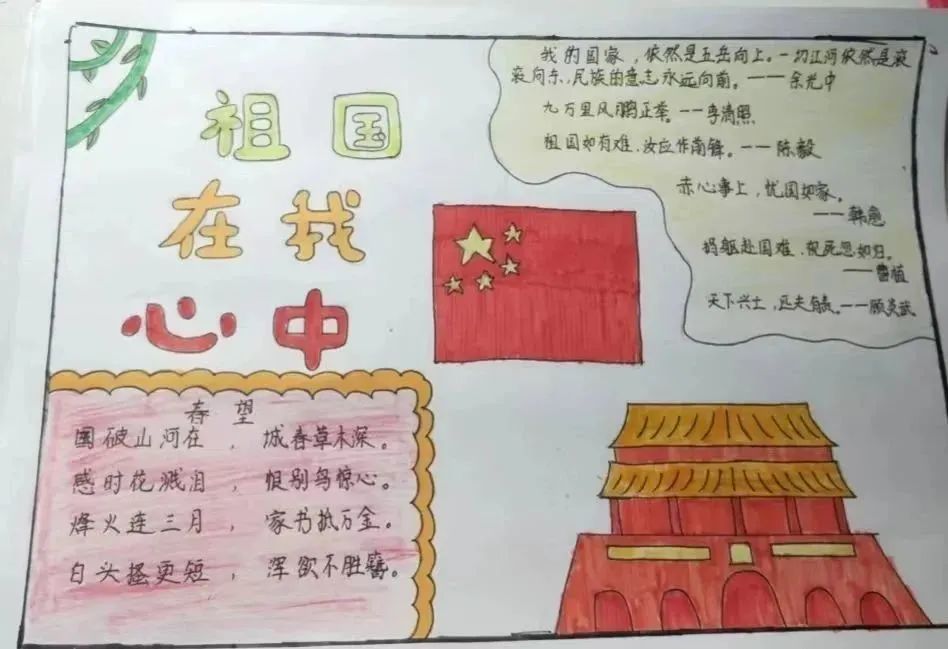 祖国
在我
心中
我的国家，依然是五岳向上。一切江河依然是滚
滚向东，民族的意志永远向前。——余光中
九万里风鹏正举。——李清照
祖国如有难，汝应作前锋。——陈毅
赤心事上，忧国如家。
——韩愈
捐躯赴国难，视死忽如归。
——曹植
天下兴亡，匹夫有责。——顾炎武
春望
国破山河在，城春草木深。
感时花溅泪，恨别鸟惊心。
烽火连三月，家书抵万金。
白头搔更短，浑欲不胜簪。